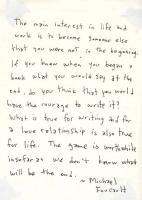 The main interest in life and
work is to become someone else
that you were not in the beginning.
If you knew when you began a
book what you would say at the
end, do you think that you would
have the courage to write it?
What is true for writing and for
a love relationship is also true
for life. The game is worthwhile
insofar as we don't know what
will be the end.
~ Michael
Foucault